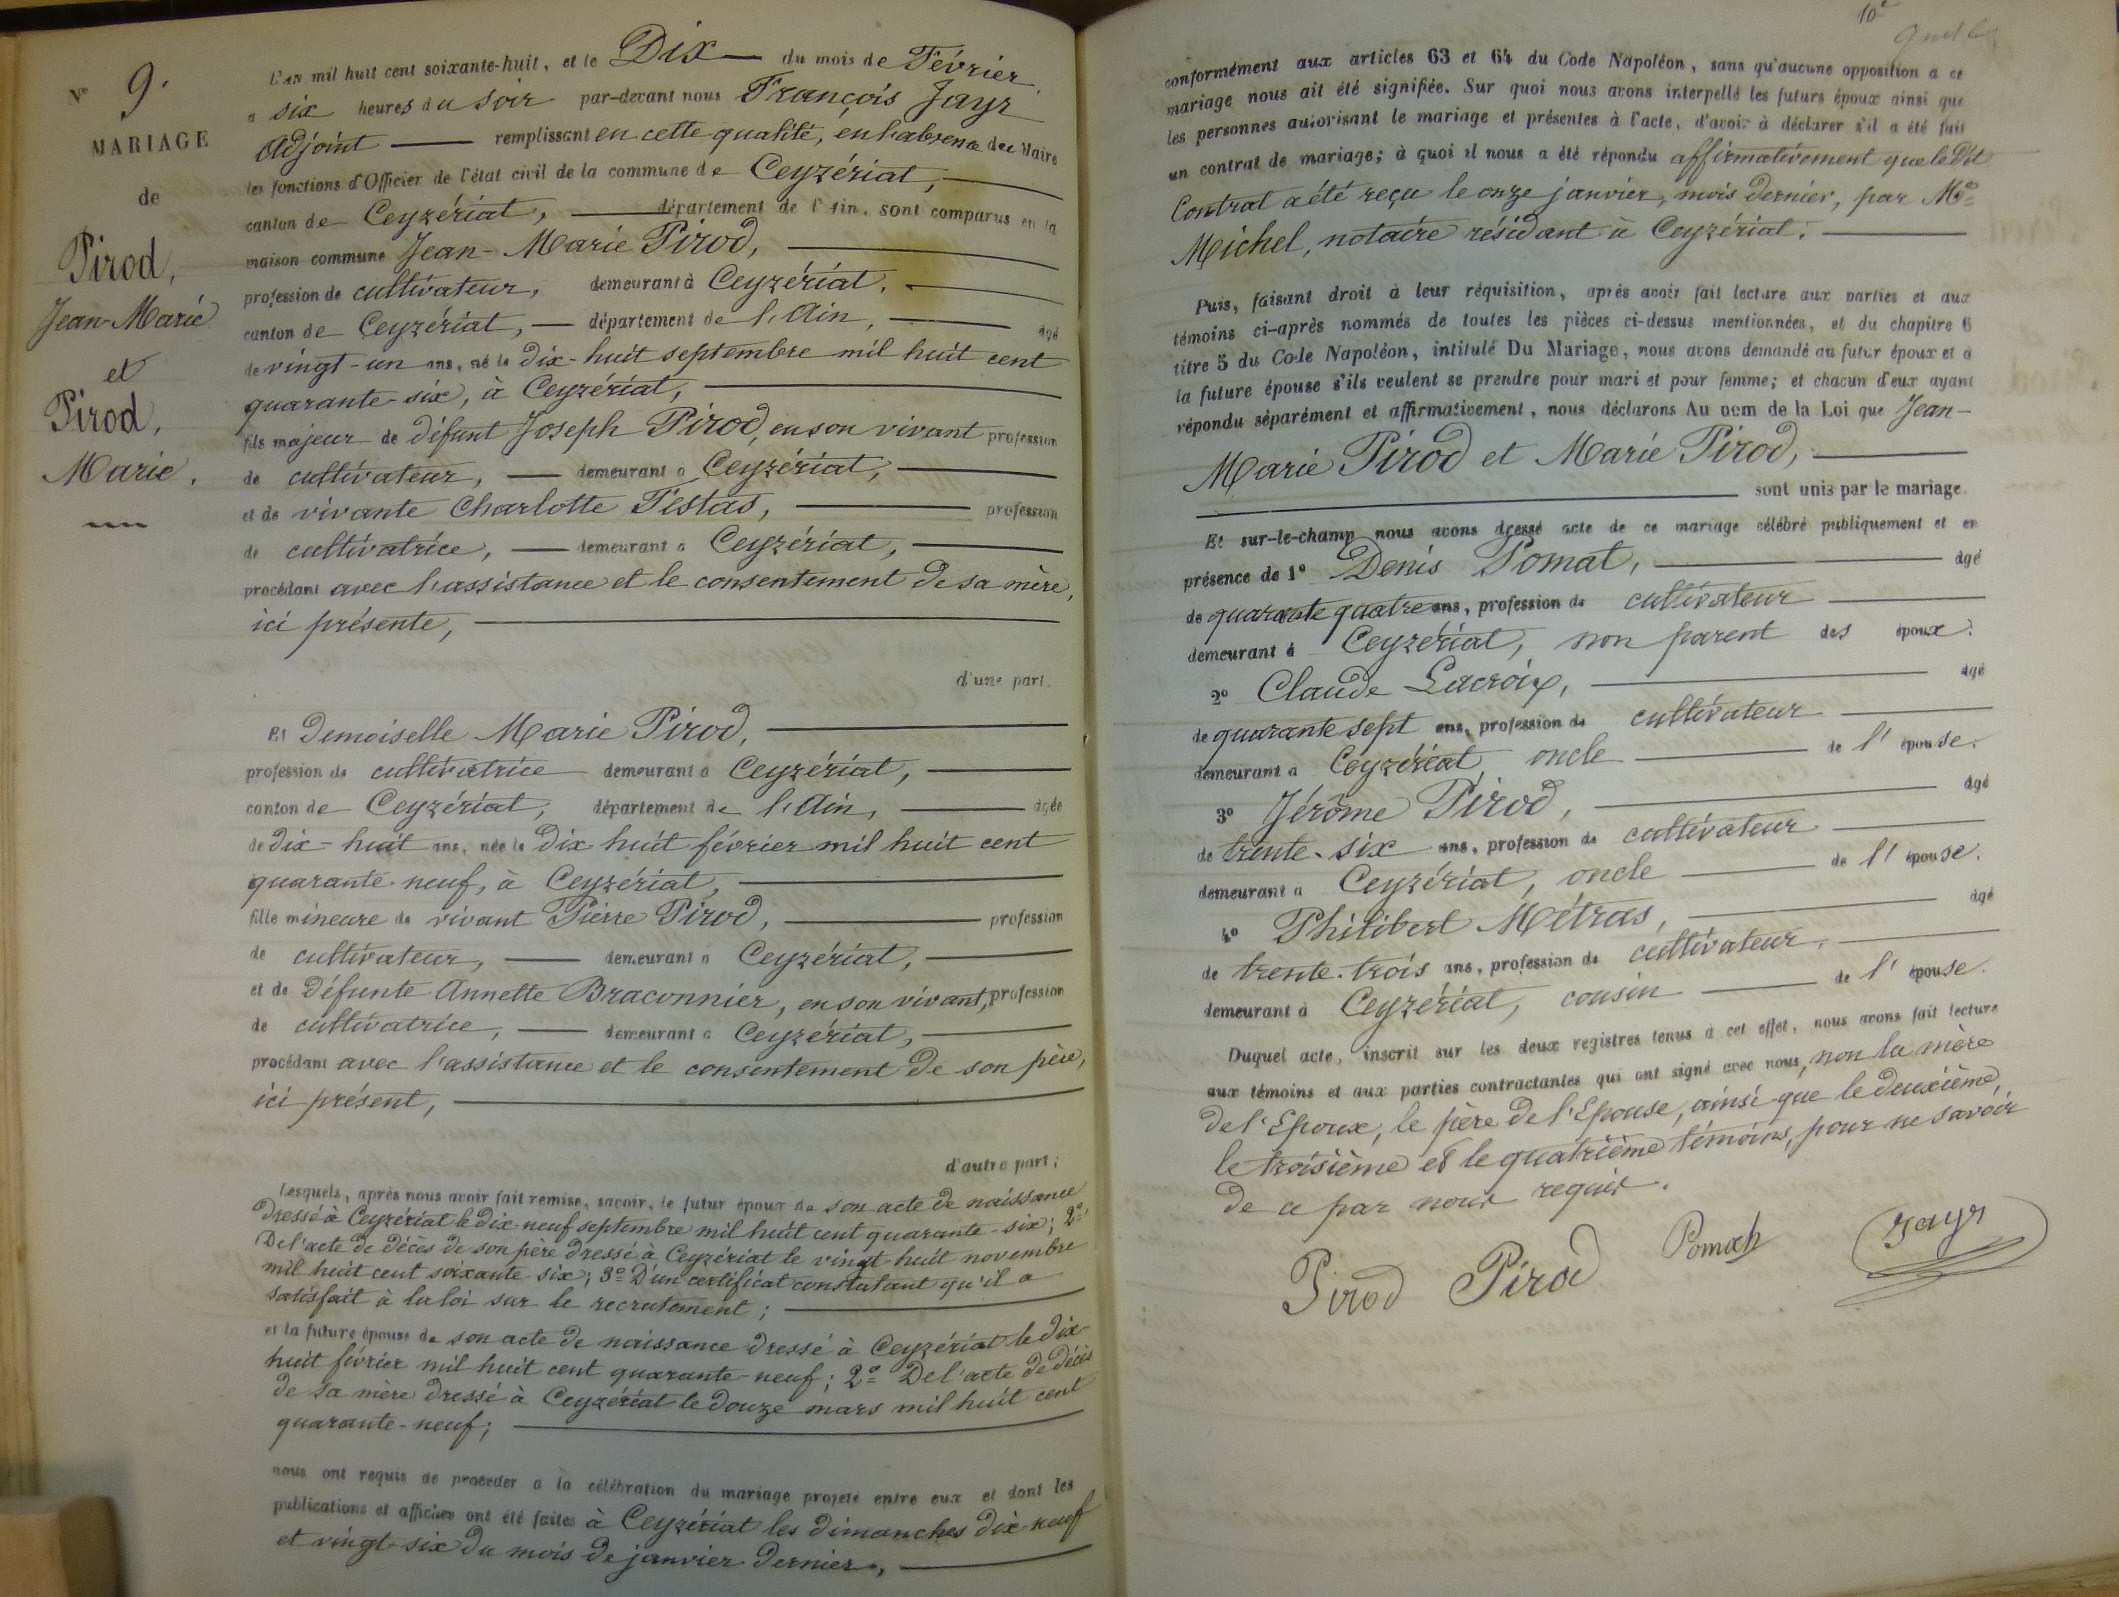 N° 9.
MARIAGE
de
Pirod,
Jean-Marie
et
Pirod,
Marie.
L'an mil huit cent soixante-huit, et le Dix du mois de Février
a six heures du soir par-devant nous François Jayr
Adjoint remplissant en cette qualité, en l'absence du Maire
les fonctions d'Officier de l'état civil de la commune de Ceyzériat,
canton de Ceyzériat, département de l'Ain, sont comparus en la
maison commune Jean-Marie Pirod,
profession de cultivateur, demeurant à Ceyzériat,
canton de Ceyzériat, département de l'Ain, âgé
de vingt-un ans, né le dix-huit septembre mil huit cent
quarante-six, à Ceyzériat,
fils majeur de défunt Joseph Pirod, en son vivant profession
de cultivateur, demeurant à Ceyzériat,
et de vivante Charlotte Festas, profession
de cultivatrice, demeurant à Ceyzériat,
procédant avec l'assistance et le consentement de sa mère,
ici présente,
d'une part.
Et Demoiselle Marie Pirod,
profession de cultivatrice demeurant à Ceyzériat,
canton de Ceyzériat, département de l'Ain, âgée
de dix-huit ans, née le dix huit février mil huit cent
quarante-neuf, à Ceyzériat,
fille mineure de vivant Pierre Pirod, profession
de cultivateur, demeurant à Ceyzériat,
et de défunte Annette Braconnier, en son vivant, profession
de cultivatrice, demeurant à Ceyzériat,
procédant avec l'assistance et le consentement de son père,
ici présent,
d'autre part;
Lesquels, après nous avoir fait remise, savoir, le futur époux de son acte de naissance
dressé à Ceyzériat le dix-neuf septembre mil huit cent quarante-six; 2°
De l'acte de décès de son père dressé à Ceyzériat le vingt-huit novembre
mil huit cent soixante-six; 3° D'un certificat constatant qu'il a
satisfait à la loi sur le recrutement;
et la future épouse de son acte de naissance dressé à Ceyzériat le dix-
huit février mil huit cent quarante-neuf; 2° De l'acte de décès
de sa mère dressé à Ceyzériat le douze mars mil huit cent
quarante-neuf;
nous ont requis de procéder a la célébration du mariage projeté entre eux et dont les
publications et affiches ont été faites à Ceyzériat les dimanches dix-neuf
et vingt-six du mois de janvier dernier,
10e
conformément aux articles 63 et 64 du Code Napoléon, sans qu'aucune opposition a ce
mariage nous ait été signifiée. Sur quoi nous avons interpellé les futurs époux ainsi que
les personnes autorisant le mariage et présentes à l'acte, d'avoir à déclarer s'il a été fait
un contrat de mariage; à quoi il nous a été répondu affirmativement que le Dit
Contrat a été reçu le onze janvier, mois dernier, par Me
Michel, notaire résidant à Ceyzériat.
Puis, faisant droit à leur réquisition, après avoir fait lecture aux parties et aux
témoins ci-après nommés de toutes les pièces ci-dessus mentionnées, et du chapitre 6
titre 5 du Code Napoléon, intitulé Du Mariage, nous avons demandé au futur époux et a
la future épouse s'ils veulent se prendre pour mari et pour femme; et chacun d'eux ayant
répondu séparément et affirmativement, nous déclarons Au nom de la Loi que Jean-
Marie Pirod et Marie Pirod,
sont unis par le mariage.
Et sur-le-champ nous avons dressé acte de ce mariage célébré publiquement et en
présence de 1° Denis Pomat, âgé
de quarante quatre ans, profession de cultivateur
demeurant à Ceyzériat, non parent des époux.
2° Claude Lacroix, âgé
de quarante sept ans, profession de cultivateur
demeurant a Ceyzériat oncle de l'épouse.
3° Jérôme Pirod, âgé
de trente-six ans, profession de cultivateur
demeurant a Ceyzériat, oncle de l'épouse.
4° Philibert Métras, âgé
de trente-trois ans, profession de cultivateur,
demeurant à Ceyzériat, cousin de l'épouse.
Duquel acte, inscrit sur les deux registres tenus à cet effet, nous avons fait lecture
aux témoins et aux parties contractantes qui ont signé avec nous, non la mère
de l'Epoux, le père de l'Epouse, ainsi que le deuxième,
le troisième et le quatrième témoins, pour ne savoir
de ce par nous requis.
Pirod Pirod Pomat Jayr